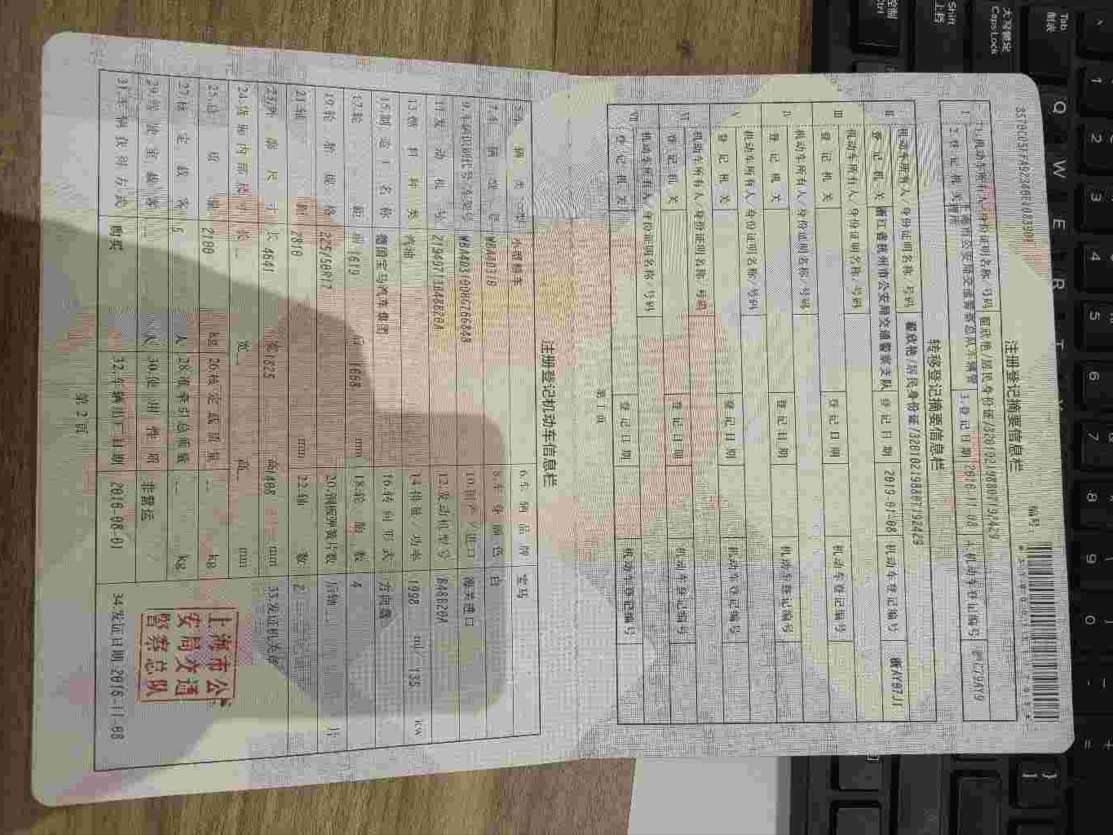 注册登记摘要信息栏
编号:
1.机动车所有人/身份证明名称/号码 翟欣艳/居民身份证/320102198807192429
2.登记机关 3.登记日期 2016-11-08 4.机动车登记编号
转移登记摘要信息栏
Ⅱ 机动车所有人/身份证明名称/号码 翟欣艳/居民身份证/320102198807192429
登记机关 浙江省杭州市公安局交通警察支队 登记日期 2019-01-08 机动车登记编号
Ⅲ 机动车所有人/身份证明名称/号码
登记机关 登记日期 机动车登记编号
Ⅳ 机动车所有人/身份证明名称/号码
登记机关 登记日期 机动车登记编号
Ⅴ 机动车所有人/身份证明名称/号码
登记机关 登记日期 机动车登记编号
Ⅵ 机动车所有人/身份证明名称/号码
登记机关 登记日期 机动车登记编号
Ⅶ 机动车所有人/身份证明名称/号码
登记机关 登记日期 机动车登记编号
第1页
注册登记机动车信息栏
5.车辆类型 小型轿车 6.车辆品牌 宝马
7.车辆型号 8.车身颜色 白
9.车辆识别代号/车架号 10.国产/进口 海关进口
11.发动机号 12.发动机型号 B48B20A
13.燃料种类 汽油 14.排量/功率 1998 ml/ 135 kw
15.制造厂名称 德国宝马汽车集团 16.转向形式 方向盘
17.轮距 前 1619 后 1668 mm 18.轮胎数 4
19.轮胎规格 225/50R17 20.钢板弹簧片数 后轴 片
21.轴距 2810 mm 22.轴数 2
23.外廓尺寸 长 4641 宽 1825 高 mm 33.发证机关章
24.货厢内部尺寸 长 宽 高 mm
25.总质量 2100 kg 26.核定载质量 -- kg
27.核定载客 5 人 28.准牵引总质量 -- kg
29.驾驶室载客 人 30.使用性质 非营运
31.车辆获得方式 购买 32.车辆出厂日期 2016-08-01 34.发证日期 2016-11-08
上海市公
安局交通
警察总队
第2页
Tab
Caps Lock
大写锁定
Shift
上档
Ctrl
控制
1
2
3
4
5
6
7
8
9
0
Q
W
E
R
T